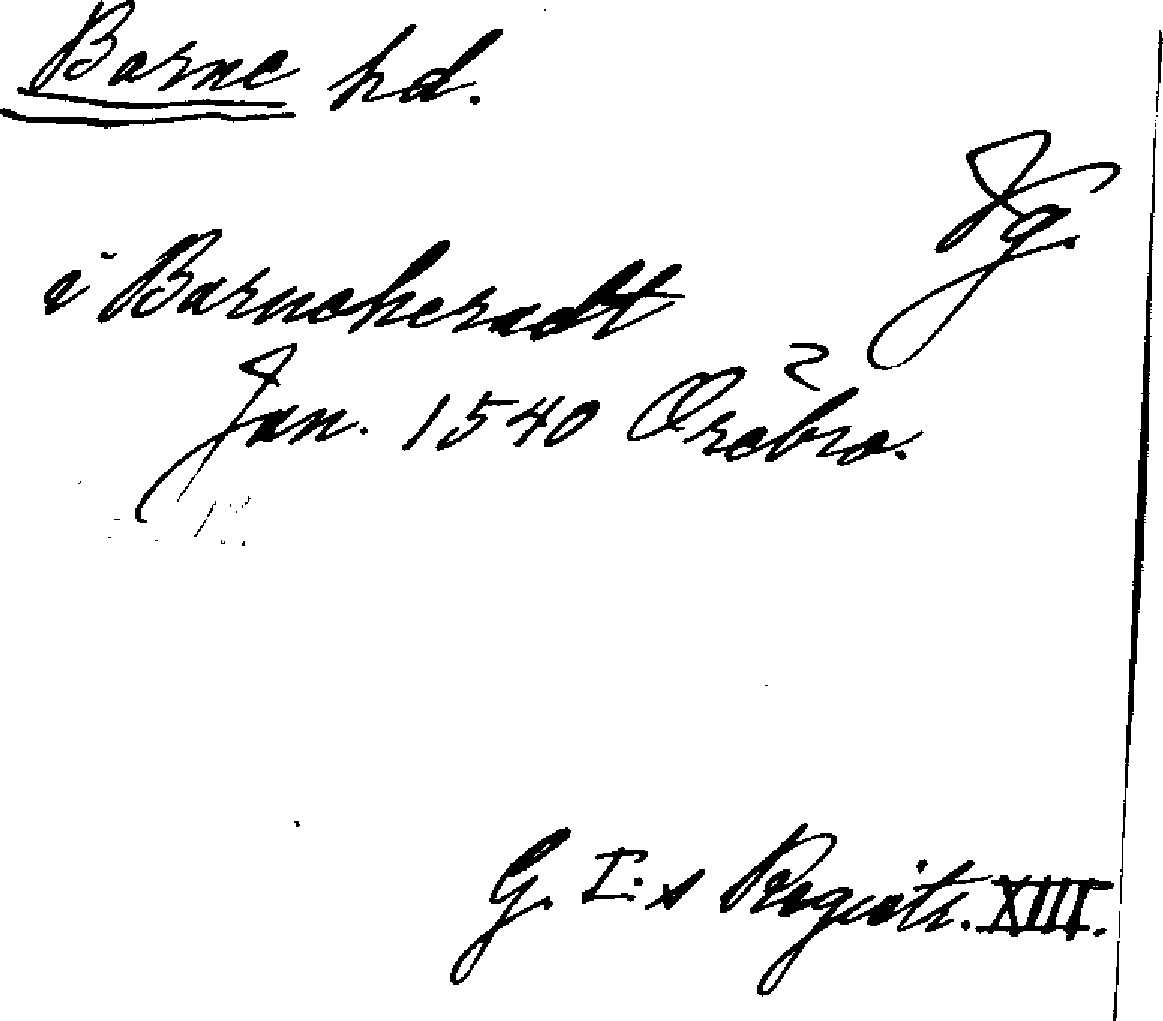 Barne hd.
Vg.
i Barneheradt
Jan. 1540 Örebro.
G. I:s Registr. XIII.